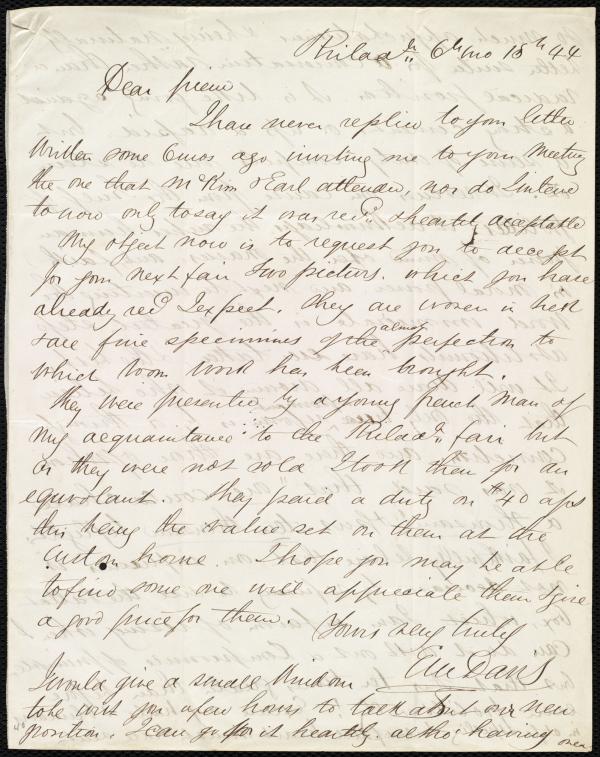 Philada. 6th mo 15th 44
Dear friend
I have never replied to your letter
written some 6 mos ago inviting me to your Meeting
the one that McKim & Earl attended, nor do I intend
to now only to say it was recd. & heartily acceptable
My object now is to request you to accept
for your next fair two pictures. which you have
already recd I expect. They are woven in silk
& are fine specimens of the almost perfection to
which loom work has been brought.
They were presented by a young french man of
my acquaintance to the Philada. fair but
as they were not sold I took them for an
equivolant. They paid a duty on $40 a ps
this being the value set on them at the
custom home. I hope you may be able
to find some one will appreciate them & give
a good price for them.
Yours very truly
E M Davis
I would give a small Kingdom
to be with you a few hours to talk about our new
position. I can go for it heartily. altho' having
over